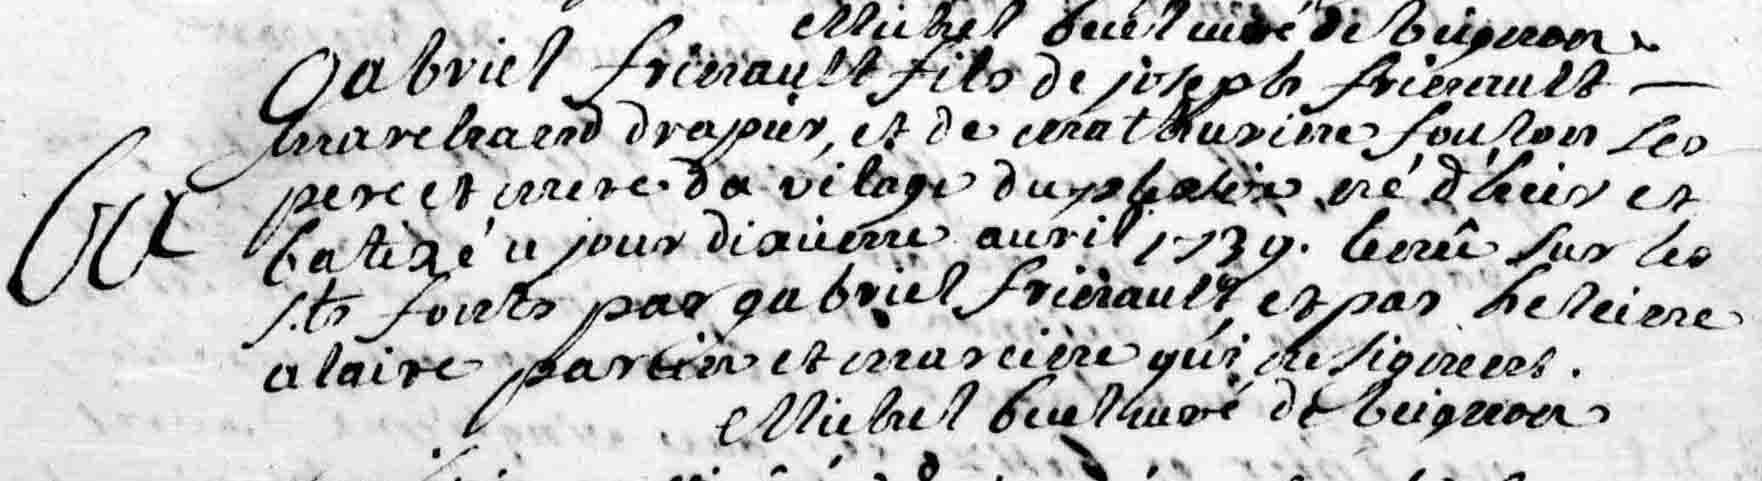 Michel buel curé de beignon
Gabriel frierault fils de joseph frierault —
marchand drapier, et de mathurine foulon ses
pere et mere du vilage du né d'hier et
batizé ce jour dixieme auril 1739. tenû sur les
sts fonts par gabriel frierault et par heleine
alaire parein et mareine qui ne signent.
Michel buel curé de beignon